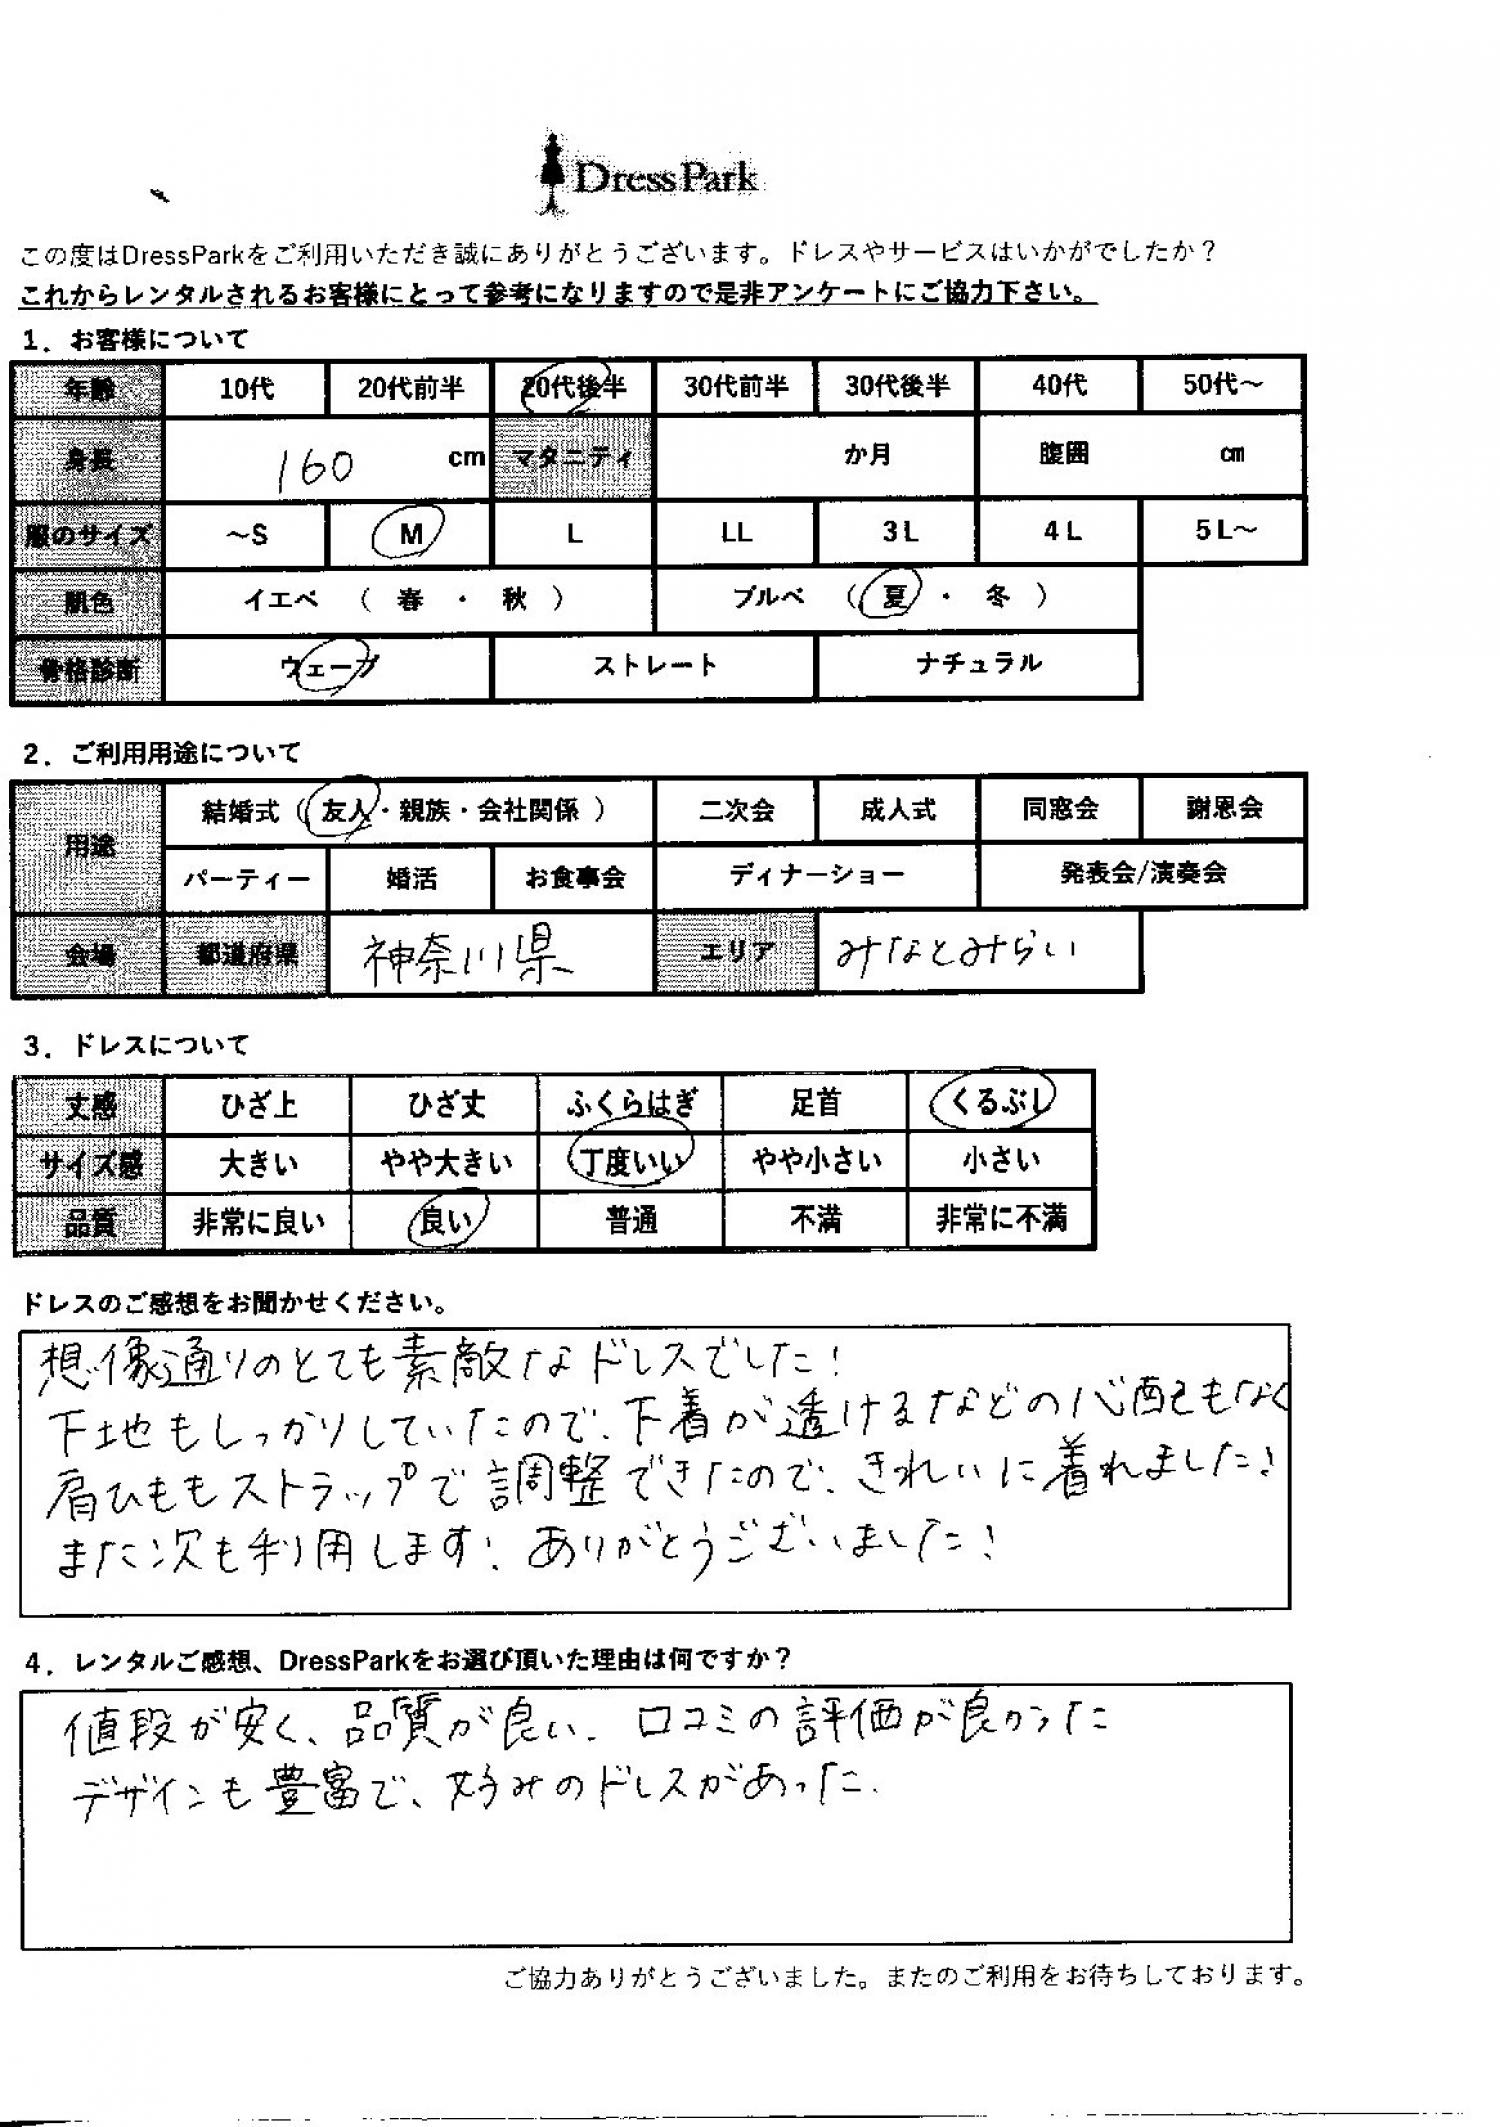 DressPark
この度はDressParkをご利用いただき誠にありがとうございます。ドレスやサービスはいかがでしたか？
これからレンタルされるお客様にとって参考になりますので是非アンケートにご協力下さい。
1．お客様について
年齢 10代 20代前半 20代後半 30代前半 30代後半 40代 50代～
身長 160 cm マタニティ か月 腹囲 cm
服のサイズ ～S M L LL 3L 4L 5L～
肌色 イエベ （ 春 ・ 秋 ） ブルベ （ 夏 ・ 冬 ）
骨格診断 ウェーブ ストレート ナチュラル
2．ご利用用途について
用途 結婚式（ 友人・親族・会社関係 ） 二次会 成人式 同窓会 謝恩会
パーティー 婚活 お食事会 ディナーショー 発表会/演奏会
会場 都道府県 神奈川県 エリア みなとみらい
3．ドレスについて
丈感 ひざ上 ひざ丈 ふくらはぎ 足首 くるぶし
サイズ感 大きい やや大きい 丁度いい やや小さい 小さい
品質 非常に良い 良い 普通 不満 非常に不満
ドレスのご感想をお聞かせください。
想像通りのとても素敵なドレスでした！
下地もしっかりしていたので、下着が透けるなどの心配もなく
肩ひももストラップで調整できたので、きれいに着れました！
また次も利用します！ありがとうございました！
4．レンタルご感想、DressParkをお選び頂いた理由は何ですか？
値段が安く、品質が良い、口コミの評価が良かった
デザインも豊富で、好みのドレスがあった。
ご協力ありがとうございました。またのご利用をお待ちしております。